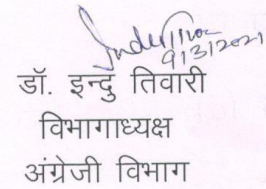 9/3/2021
डॉ. इन्दु तिवारी
विभागाध्यक्ष
अंग्रेजी विभाग